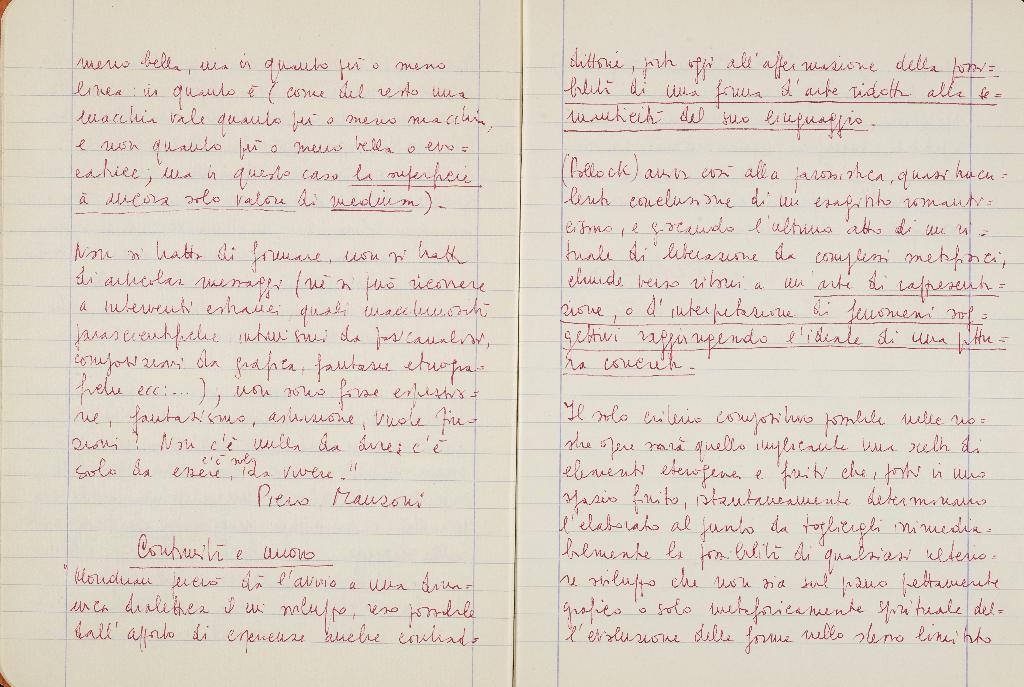 meno bella, ma in quanto più o meno
linea: in quanto è (come del resto una
macchia vale quanto più o meno macchia,
e non quanto più o meno bella o evo=
catrice; ma in questo caso la superficie
à ancora solo valore di medium).
Non si tratta di formare, non si tratta
di articolare messaggi (nè si può ricorrere
a interventi estranei, quali macchinosità
parascientifiche, intimismi da psicanalisi,
composizioni da grafica, fantasie etnogra=
fiche ecc:...); non sono forse espressio=
ne, fantasismo, astrazione, vuote fin=
zioni? Non c'è nulla da dire: c'è
solo da essere, c'è solo da vivere."
Piero Manzoni
Continuità e nuovo
"Mondrian perciò dà l'avvio a una dina=
mica dialettica il cui sviluppo, reso possibile
dall'apporto di esperienze anche contrad=
dittorie, porta oggi all'affermazione della possi=
bilità di una forma d'arte ridotta alla se=
manticità del suo linguaggio.
(Pollock) arriva così alla parossistica, quasi trucu=
lenta conclusione di un esagitato romanti=
cismo, e giocando l'ultimo atto di un ri=
tuale di liberazione da complessi metafisici,
chiude verso ritorni a un'arte di rappresenta=
zione, o d'interpretazione di fenomeni sog=
gettivi raggiungendo l'ideale di una pittu=
ra concreta.
Il solo criterio compositivo possibile nelle no=
stre opere sarà quello implicante una scelta di
elementi eterogenei e finiti che, posti in uno
spazio finito, istantaneamente determinano
l'elaborato al punto da togliergli irrimedia=
bilmente la possibilità di qualsiasi ulterio=
re sviluppo che non sia sul piano prettamente
grafico o solo metaforicamente spirituale del=
l'evoluzione delle forme nello stesso limitato